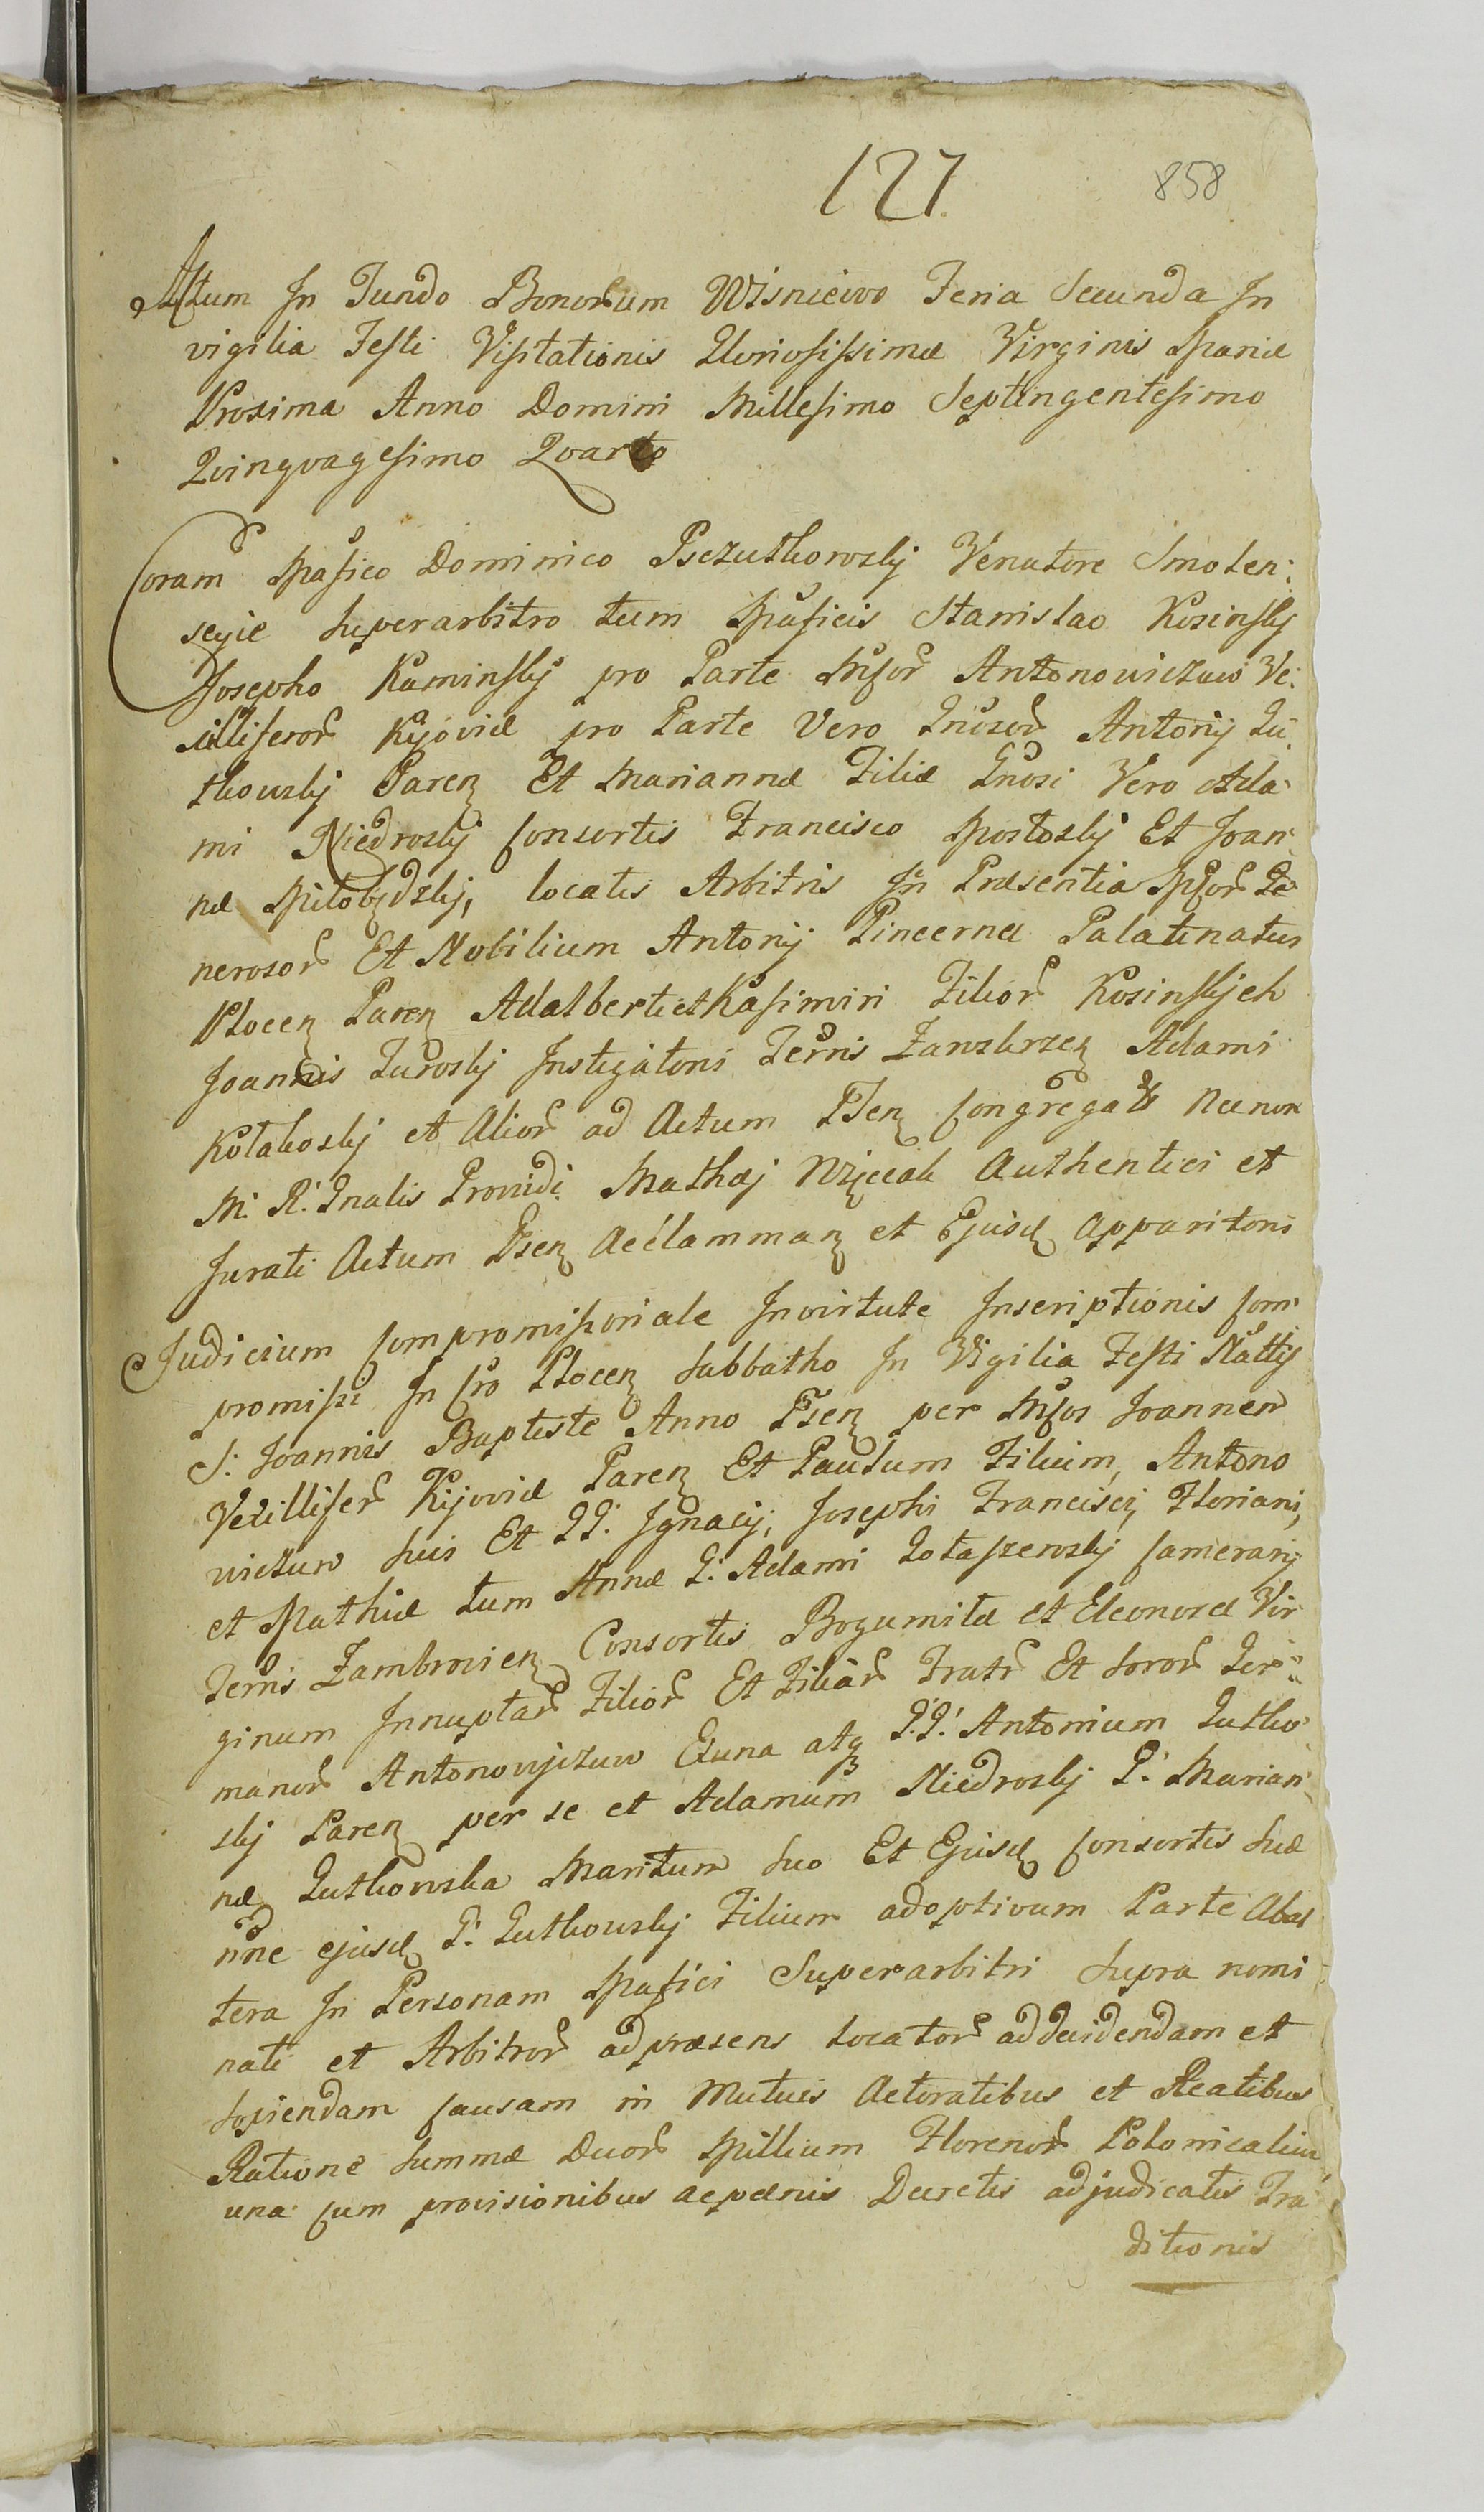 127
858
Actum In Fundo Bonorum Wisniewo Feria Secunda In
vigilia Festi Visitationis Gloriosissimæ Virginis Mariæ
Proxima Anno Domini Millesimo Septingentesimo
Qvinqvagesimo Qvarto
Coram Mafico Dominico Pszutkowskj Venatore Smolen:
scyie Superarbitro tum Maficis Stanislao Kosinskj
Josepho Kaminskj pro Parte Mfcor Antonowiczow Ve:
xilliferor Kijoviæ pro Parte Vero Gnosor Antonij Gu
tkowskj Paren Et Mariannæ Filiæ Gnosi Vero Ada
mi Niedroskj Consortis Francisco Mostoskj Et Joan
ne Miłobędzkj, locatis Arbitris In Præsentia Mfcor Ge
nerosor Et Nobilium Antonij Pincernæ Palatinatus
Plocen Paren Adalberti et Kasimiri Filior Kosinskjch
Joannis Guroskj Instigatoris Terris Zawskrzen Adami
Kołakoskj et Alior ad Actum Psen Congregatr Necnon
M. R. Gnalis Providi Mathæj Wzjecak Authentici et
Jurati Actum Psen Acclamman et Ejusd Apparitoris
Judicium Compromissoriale In virtute Inscriptionis Com
promissi In Cro Plocen Sabbatho In Vigilia Festi Nattis
S. Joannis Baptiste Anno Psen per Mfcos Joannem
Vexillifer Kijoviæ Paren Et Paulum Filium, Antono
wiczuw suis Et GG. Ignacij, Josephi Francisci, Floriani,
et Mathiæ tum Annæ G. Adami Gołaszewskj Camerarij
Terris Zambrovien Consortis Bogumiłæ et Eleonoræ Vir
ginum Innuptar Filior Et Filiar Fratr Et Soror Ger
manor Antonowjczuw Et una atq G.G. Antonium Gutko
skj Paren per se et Adamum Niedroskj G. Marian
næ Gutkowska Maritum suo Et Ejusd Consortis suæ
nne ejusd G. Gutkowskj Filium adoptivum Parte Abal
tera In Personam Mafici Superarbitri Supra nomi
nati et Arbitror ad præsens locator ad decidendam et
Sopiendam Causam in Mutuis Actoratibus et Reatibus
Ratione Summæ Duor Millium Florenor Polonicaliu
una cum provisionibus ac pænis Decretis adjudicatis Tra
ditionis